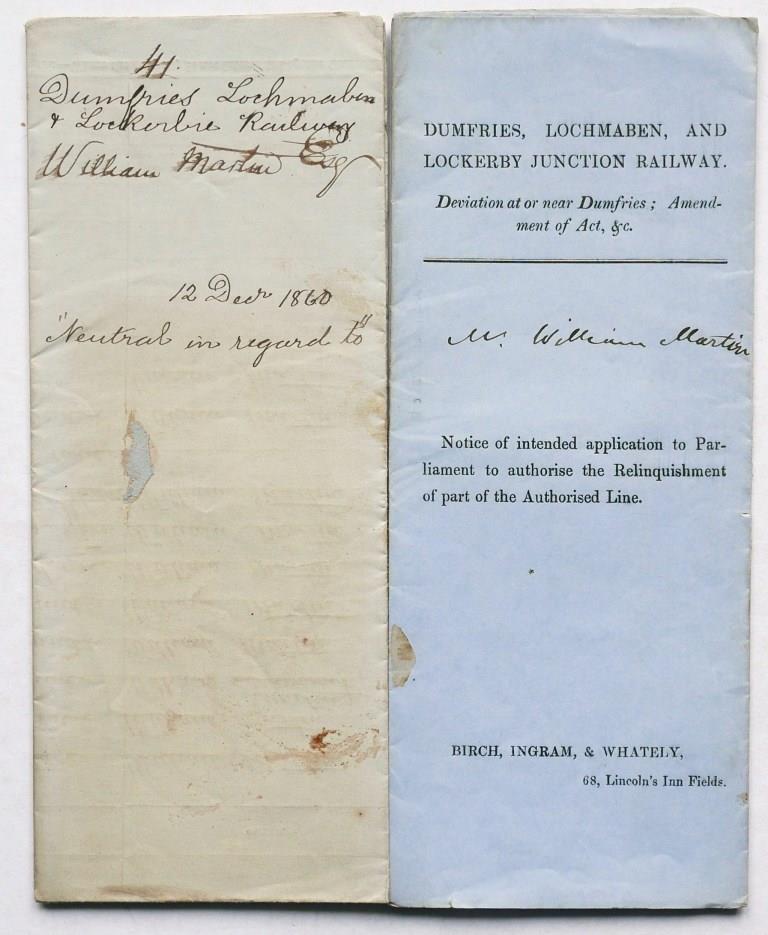 41
Dumfries Lochmaben
& Lockerbie Railway
William Martin Esq
12 Decr 1860
"Neutral in regard to"
DUMFRIES, LOCHMABEN, AND
LOCKERBY JUNCTION RAILWAY.
Deviation at or near Dumfries; Amend-
ment of Act, &c.
Mr. William Martin
Notice of intended application to Par-
liament to authorise the Relinquishment
of part of the Authorised Line.
BIRCH, INGRAM, & WHATELY,
68, Lincoln's Inn Fields.